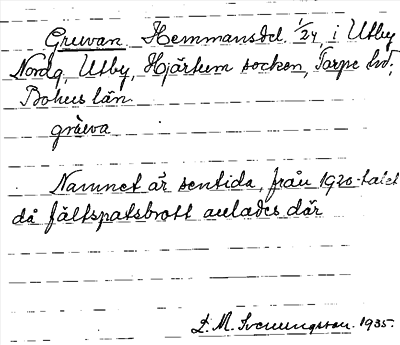 Gruvan Hemmansdel. 1/24, i Utby
Nordg, Utby, Hjärtum socken, Torpe hd;
Bohus län.
grùva
Namnet är sentida, från 1920-talet
då fältspatsbrott anlades där
D. M. Svenungsson. 1935.